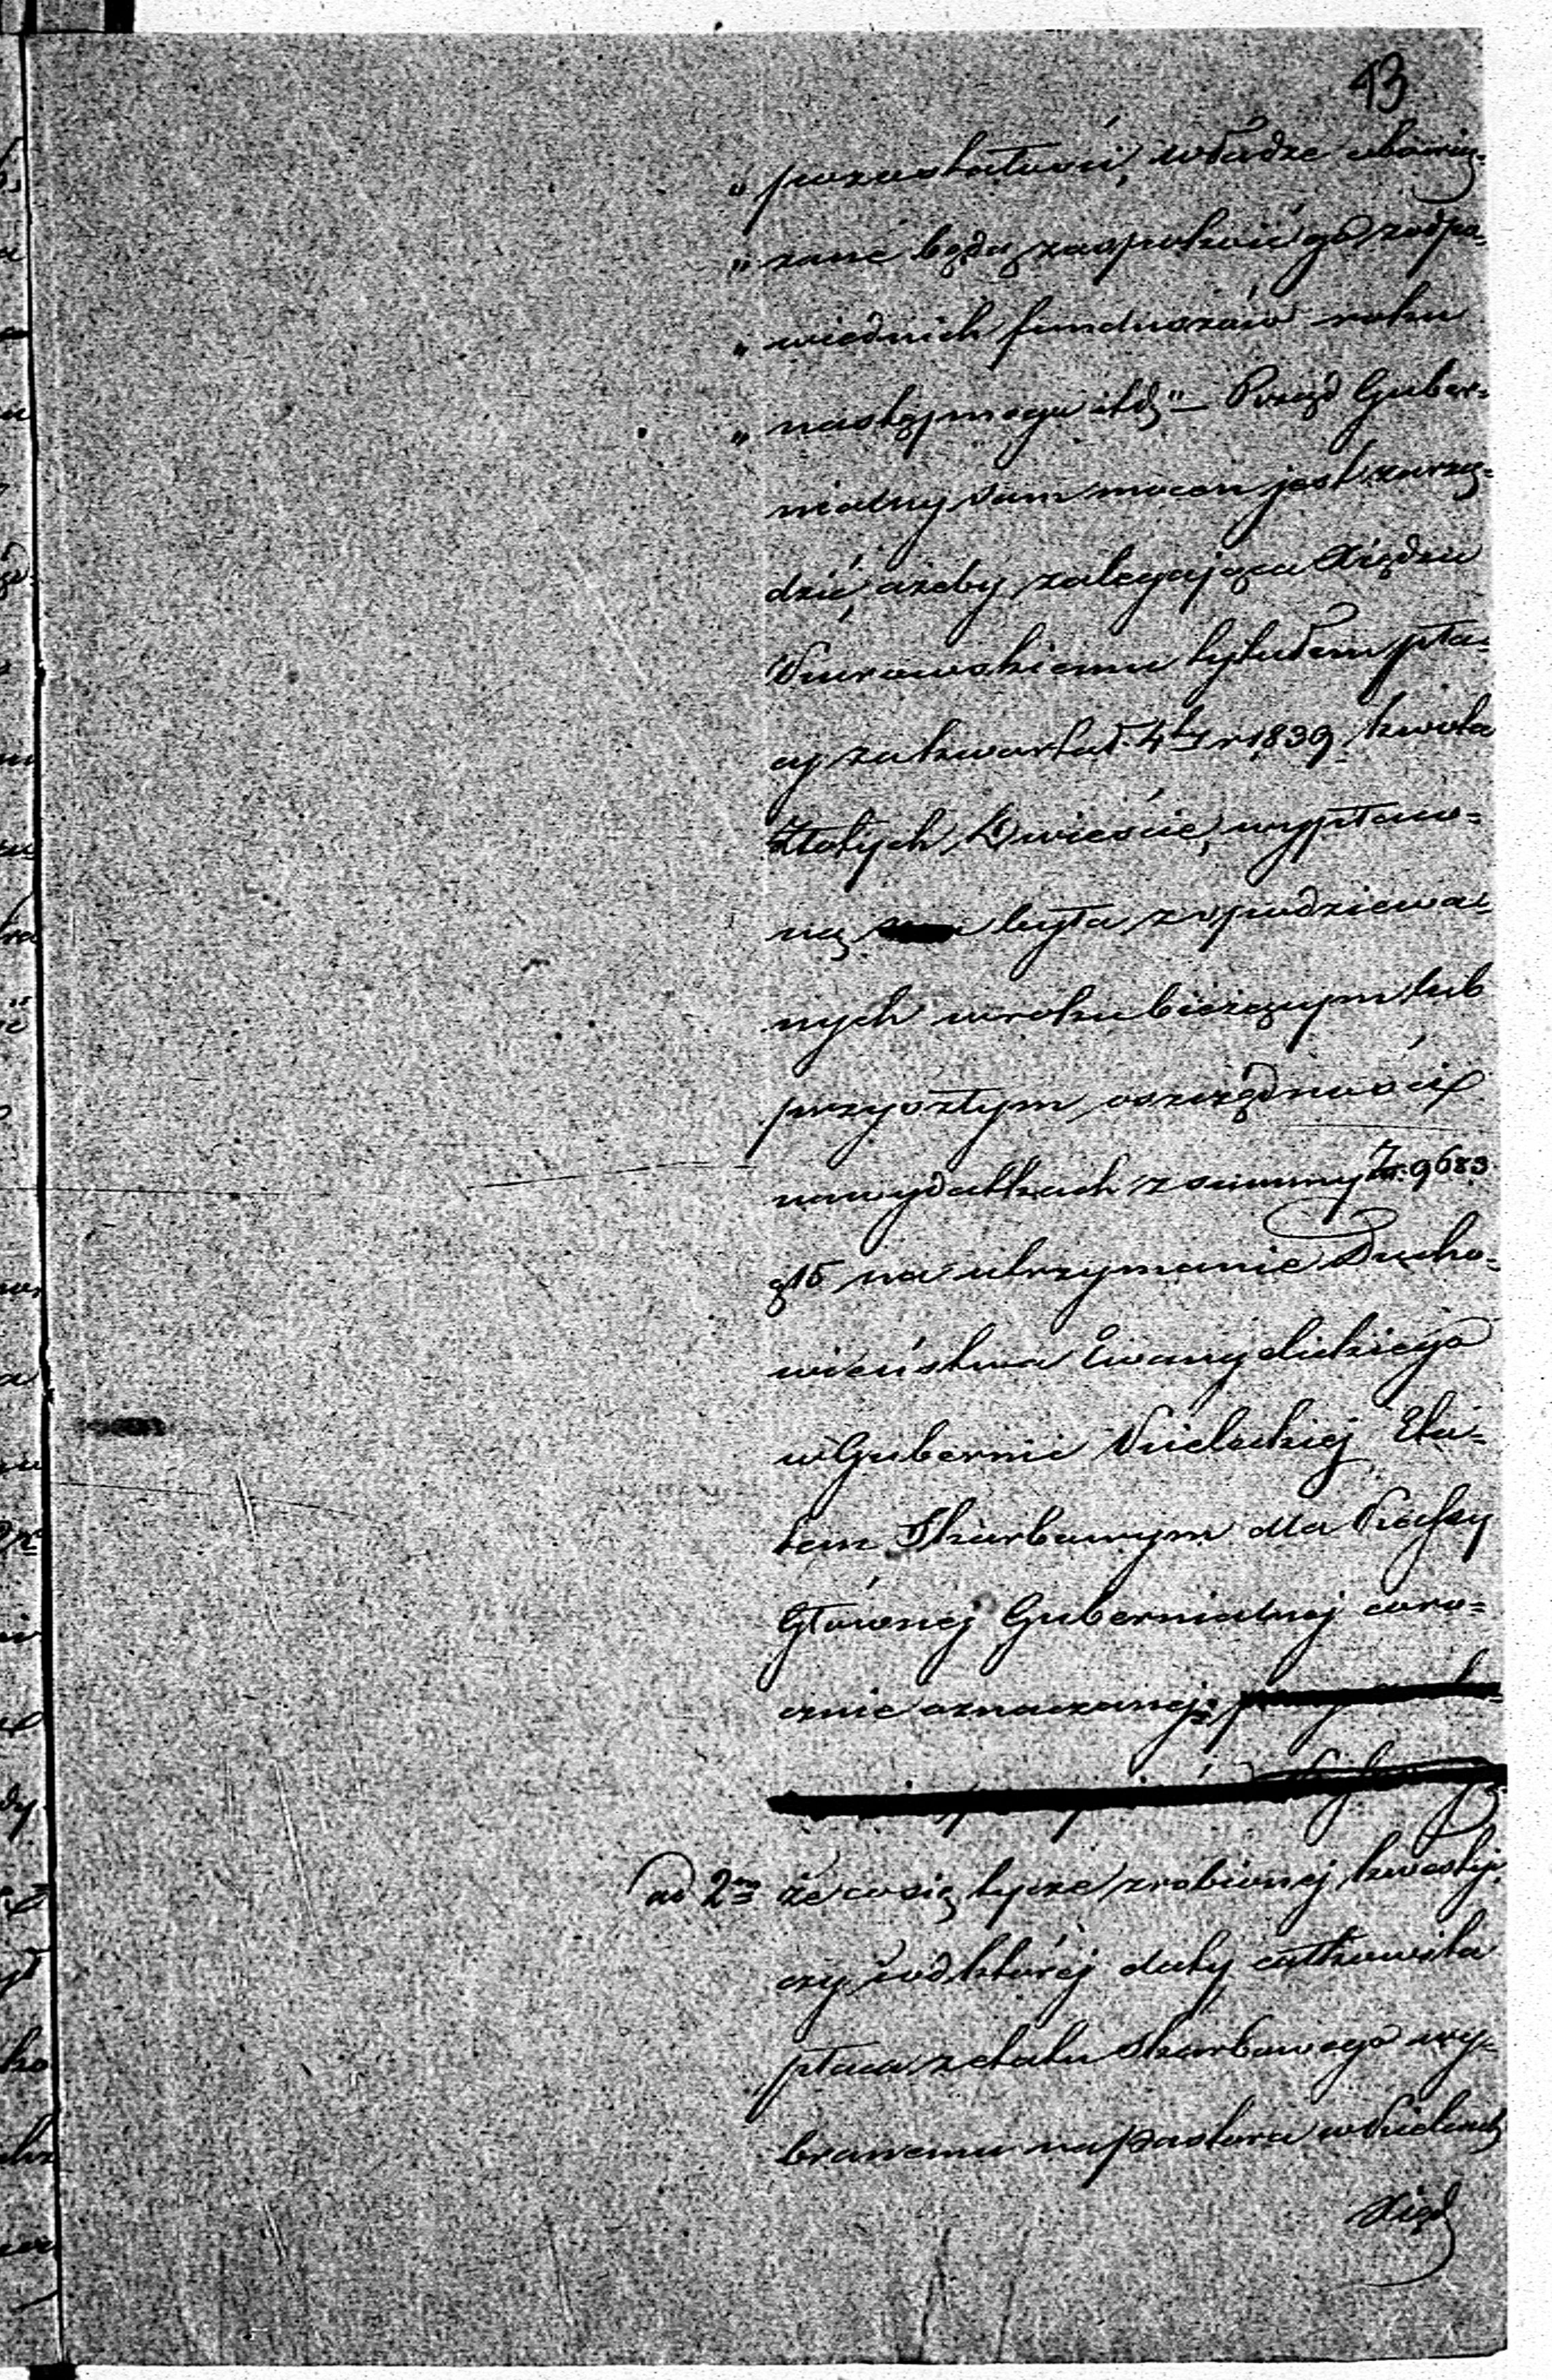 43
„ pozostałości, władze obowią-
„ zane będą zaspokoić go z odpo-
„ wiednich funduszów roku
„ następnego itd„ — Rząd Guber-
nialny sam mocen jest zarzą-
dzić, ażeby zalegająca Xiędzu
tytułem pła-
cy za kwartał 4ty r 1839 kwota
Złotych Dwieście, wypłaco-
ną była z spodziewa-
nych w roku bieżącym lub
przyszłym oszczędności
na wydatkach z summy Zł: 9683
g 15 na utrzymanie Ducho-
wieństwa Ewangelickiego
w Gubernii Kieleckiej Eta-
tem Skarbowym dla Kassy
Głównej Gubernialnej coro-
cznie oznaczonej
ad 2m że co się tycze zrobionej kwestyi,
czy i od której daty całkowita
płaca z etatu Skarbowego wy-
branemu na Pastora w Kielcach
Xięd